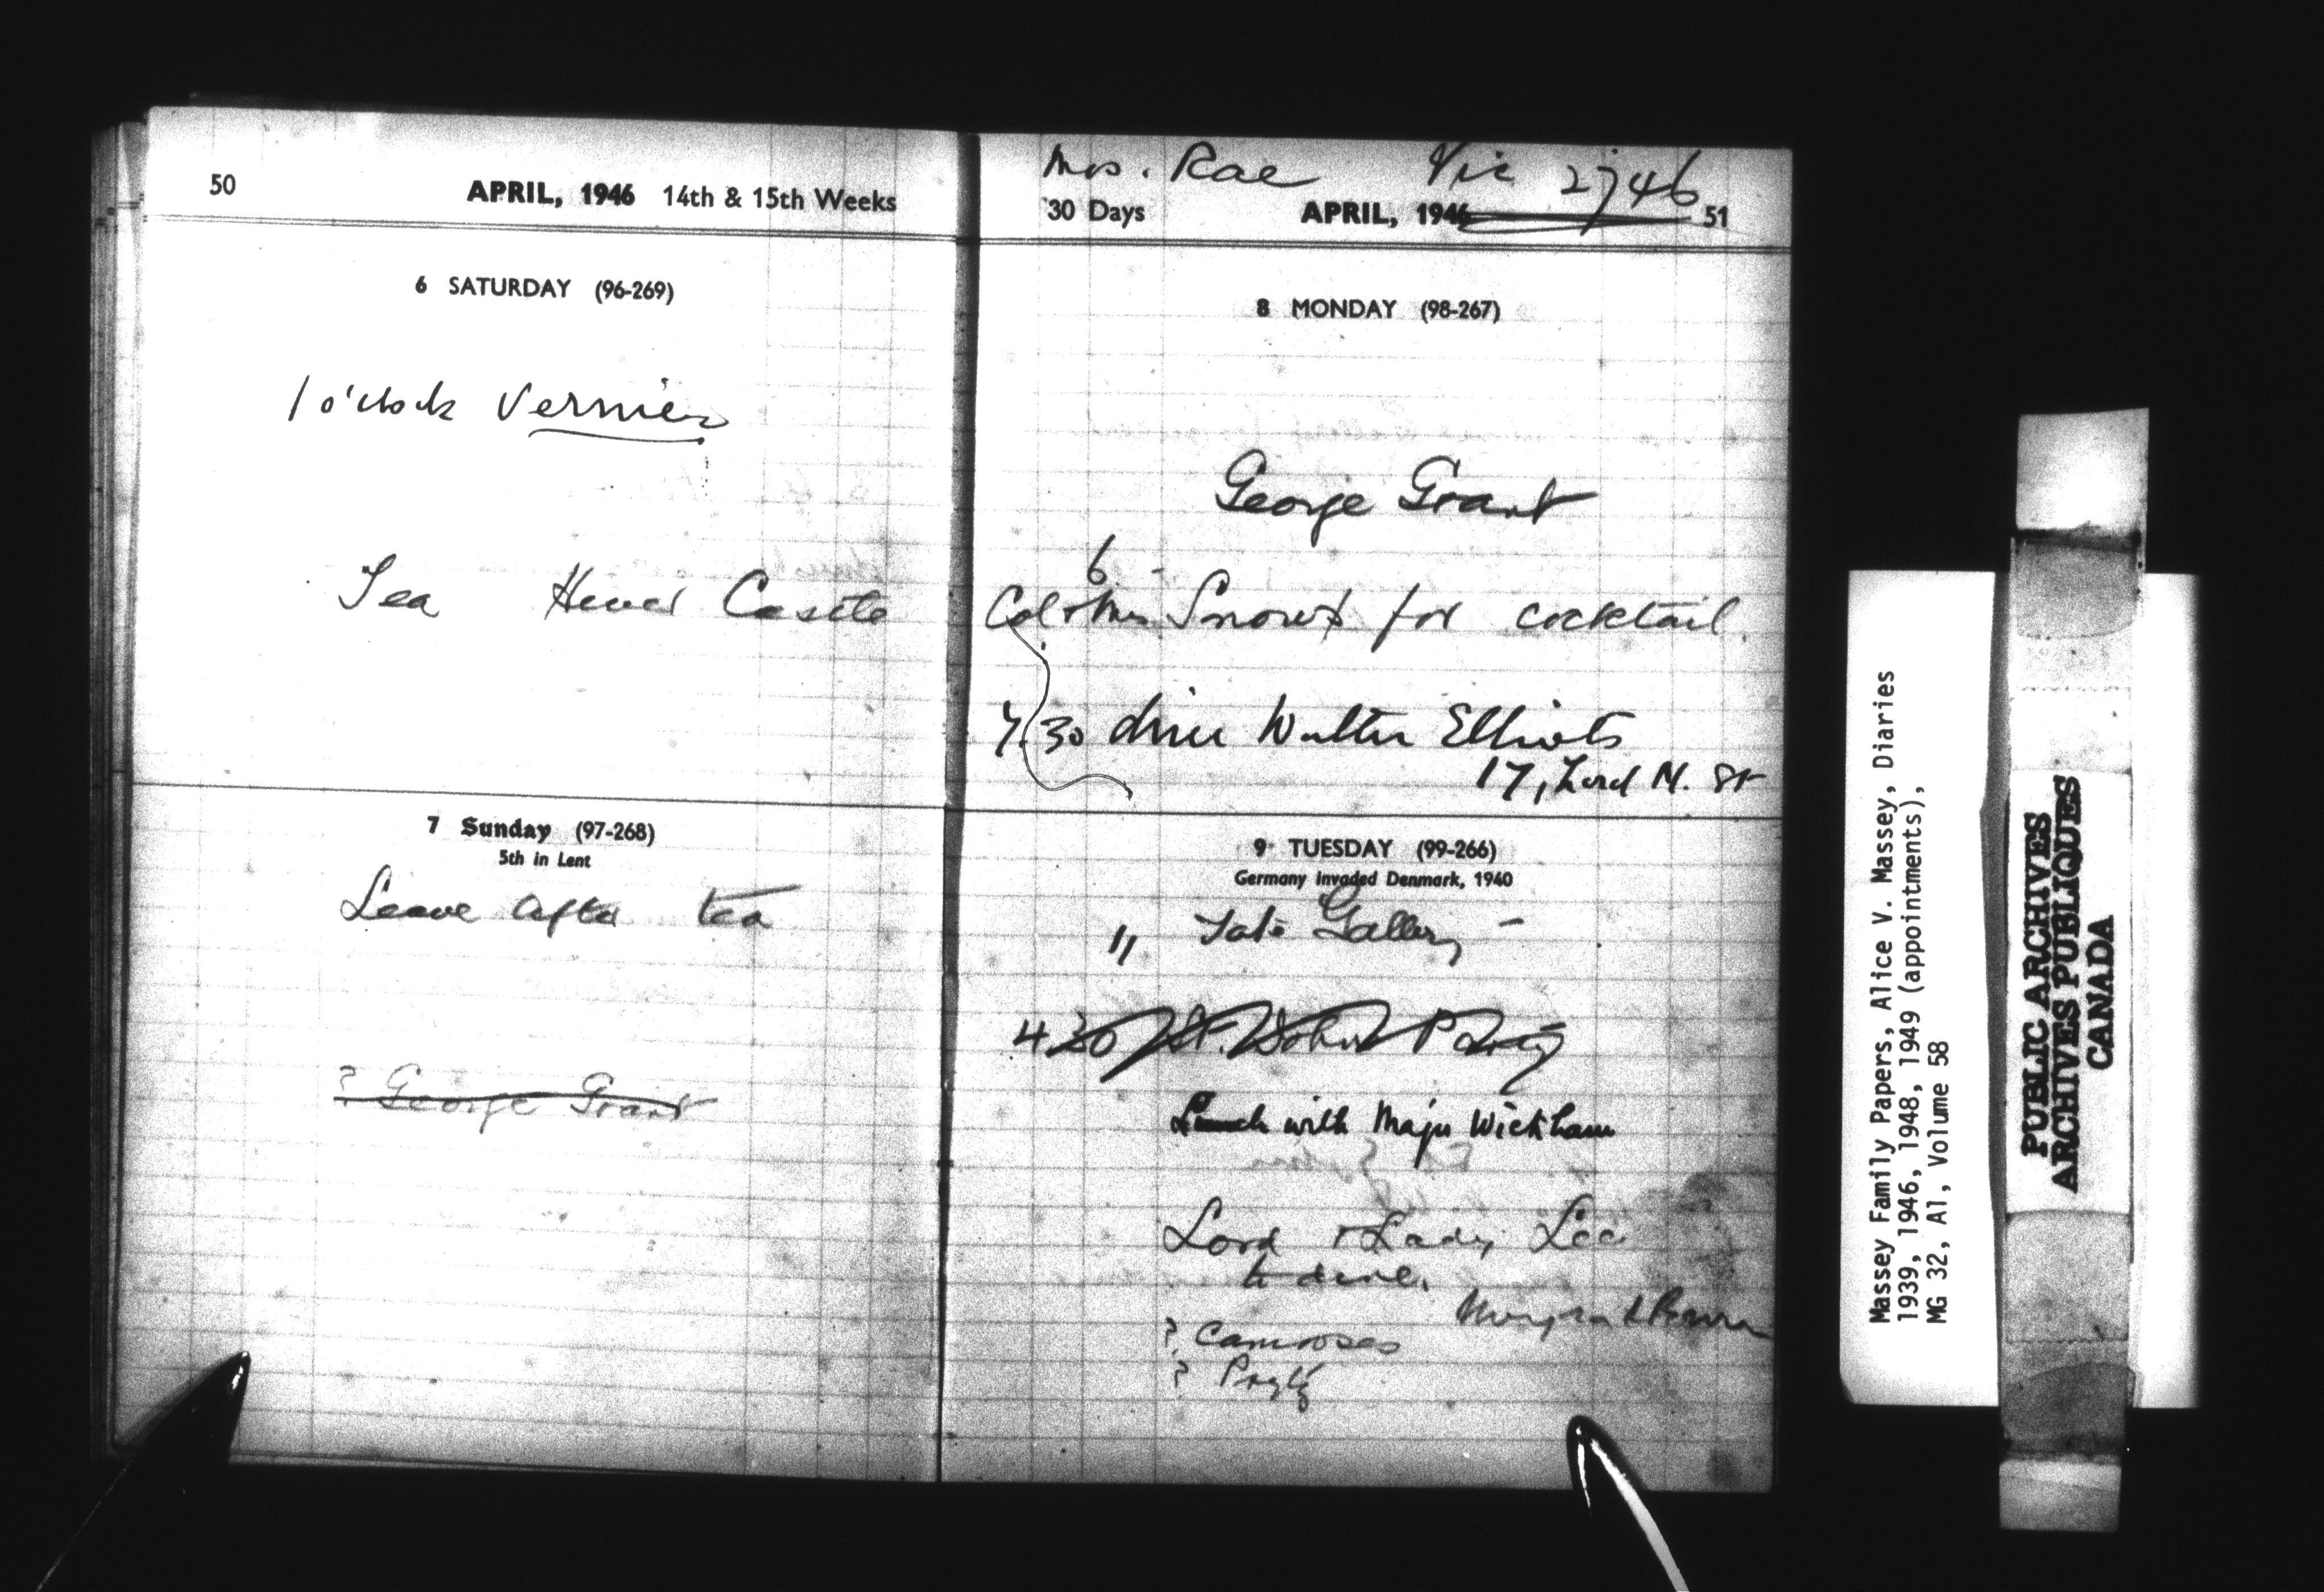 50
APRIL, 1946 14th & 15th Weeks
6 SATURDAY (96-269)
1 o'clock
Tea Hever Castle
7 Sunday (97-268)
5th in Lent
Leave after tea
? George Grant
Mrs. Rae Vic 2746
30 Days APRIL, 1946 51
8 MONDAY (98-267)
George Grant
6
Col & Mrs Snow for cocktail.
7.30 dine Walter Elliots
17, Lord N. St
9 TUESDAY (99-266)
Germany invaded Denmark, 1940
11 Tate Gallery -
4.30 St. John Party
Lunch with Major Wickham
Lord & Lady Lee
to dine.
? Camroses
?
Massey Family Papers, Alice V. Massey, Diaries
1939, 1946, 1948, 1949 (appointments),
MG 32, A1, Volume 58
PUBLIC ARCHIVES
ARCHIVES PUBLIQUES
CANADA